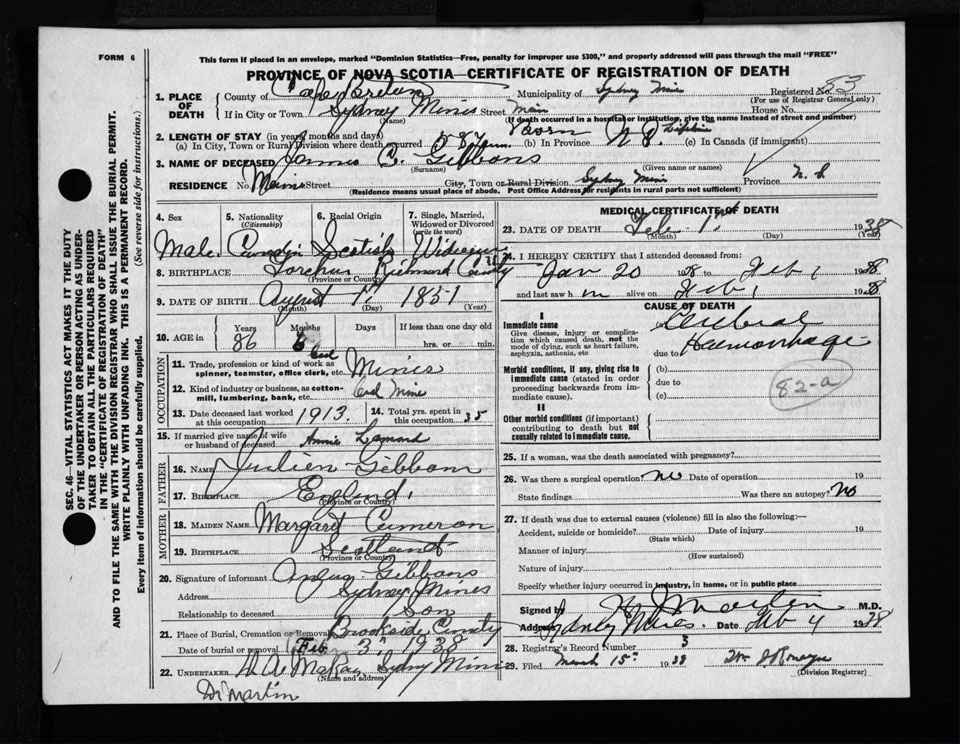 FORM 6
This form if placed in an envelope, marked "Dominion Statistics—Free, penalty for improper use $300," and properly addressed will pass through the mail "FREE"
PROVINCE OF NOVA SCOTIA—CERTIFICATE OF REGISTRATION OF DEATH
83
1. PLACE OF DEATH
County of Cape Breton Municipality of Sydney Mines Registered No.
(For use of Registrar General only)
If in City or Town Sydney Mines Street Main House No.
(Name) (If death occurred in a hospital or institution, give the name instead of street and number)
2. LENGTH OF STAY (in years, months and days)
(a) In City, Town or Rural Division where death occurred (b) In Province N.S. Lifetime (c) In Canada (if immigrant)
3. NAME OF DECEASED James C. Gibbons
(Surname) (Given name or names)
RESIDENCE No. Main Street City, Town or Rural Division Sydney Mines Province N. S
(Residence means usual place of abode. Post Office Address for residents in rural parts not sufficient)
4. Sex Male
5. Nationality (Citizenship) Canadian
6. Racial Origin Scotish
7. Single, Married, Widowed or Divorced (write the word) Widower
8. BIRTHPLACE Richmond County
(Province or Country)
9. DATE OF BIRTH August 17 1851
(Month) (Day) (Year)
10. AGE in Years 86 Months Days If less than one day old hrs. or min.
OCCUPATION
11. Trade, profession or kind of work as spinner, teamster, office clerk, etc. Coal Miner
12. Kind of industry or business, as cotton-mill, lumbering, bank, etc. Coal Mine
13. Date deceased last worked at this occupation 1913. 14. Total yrs. spent in this occupation 35
15. If married give name of wife or husband of deceased Annie Lamond
FATHER
16. NAME Julien Gibbons
17. BIRTHPLACE England.
(Province or Country)
MOTHER
18. MAIDEN NAME Margaret Cameron
19. BIRTHPLACE Scotland
(Province or Country)
20. Signature of informant Angus Gibbons
Address Sydney Mines
Relationship to deceased Son
21. Place of Burial, Cremation or Removal Brookside
Date of burial or removal Feb 3" 1938
22. UNDERTAKER Sydney Mines
(Name and address)
Dr Martin
MEDICAL CERTIFICATE OF DEATH
23. DATE OF DEATH Feb 1st 1938
(Month) (Day) (Year)
24. I HEREBY CERTIFY that I attended deceased from:
Jan 20 1938 to Feb 1 1938
and last saw him alive on Feb 1 1938
CAUSE OF DEATH
I
Immediate cause
Give disease, injury or complication which caused death, not the mode of dying, such as heart failure, asphyxia, asthenia, etc
Cerebral Haemorrhage
due to
Morbid conditions, if any, giving rise to immediate cause (stated in order proceeding backwards from immediate cause).
(b)
due to
(c)
82-a
II
Other morbid conditions (if important) contributing to death but not causally related to immediate cause.
25. If a woman, was the death associated with pregnancy?
26. Was there a surgical operation? no Date of operation 19
State findings Was there an autopsy? No
27. If death was due to external causes (violence) fill in also the following:—
Accident, suicide or homicide? Date of injury 19
(State which)
Manner of injury
(How sustained)
Nature of injury
Specify whether injury occurred in industry, in home, or in public place
Signed by Martin M.D.
Address Sydney Mines. Date Feb 4 1938
28. Registrar's Record Number 3
29. Filed March 15" 1938
(Division Registrar)
SEC. 46—VITAL STATISTICS ACT MAKES IT THE DUTY OF THE UNDERTAKER OR PERSON ACTING AS UNDERTAKER TO OBTAIN ALL THE PARTICULARS REQUIRED IN THE "CERTIFICATE OF REGISTRATION OF DEATH"
AND TO FILE THE SAME WITH THE DIVISION REGISTRAR WHO SHALL ISSUE THE BURIAL PERMIT.
WRITE PLAINLY WITH UNFADING INK. THIS IS A PERMANENT RECORD.
Every item of information should be carefully supplied. (See reverse side for instructions.)